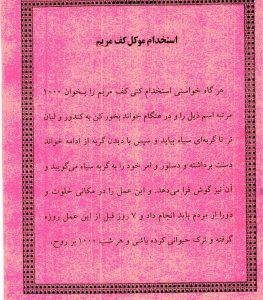 استخدام موکل کف مریم
هر گاه خواستی استخدام کنی کف مریم را بخوان ۱۰۰۰
مرتبه اسم ذیل را و در هنگام خواند بخور کن به کندور و لبان
تر تا گربه‌ای سیاه بیاید و سپس با دیدن گربه از ادامه خواند
دست برداشته و دستور و امر خود را به گربه سیاه می‌گویید و
آن نیز گوش فرا می‌دهد. و این عمل را در مکانی خلوت و
دورا از مردم باید انجام داد و ۷ روز قبل از این عمل روزه
گرفته و ترک حیوانی کرده باشی و هر شب ۱۰۰۰ بر روح،